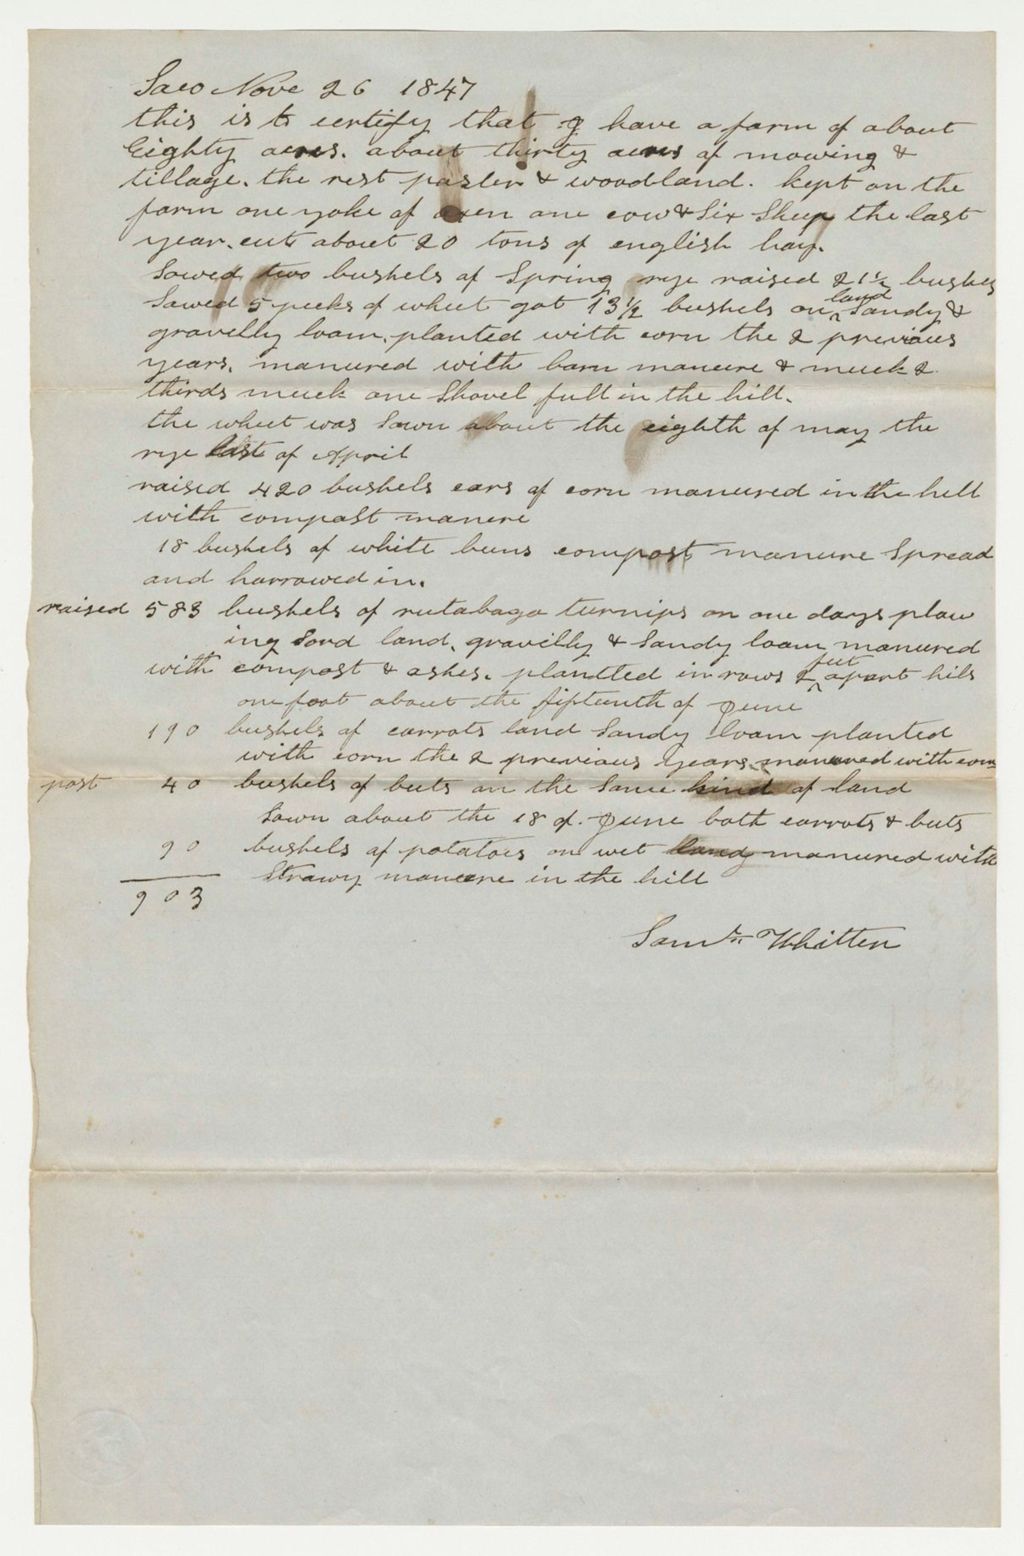 Saco Nove 26 1847
this is to certify that I have a farm of about
Eighty acres. about thirty acres of mowing &
tillage. the rest paster & woodland. kept on the
farm one yoke of oxen one cow & Six Sheep the last
year. cut about 20 tons of english hay.
Sowed two bushels of Spring rye raised 21½ bushes
Sowed 5 pecks of wheet got 13½ bushels on land Sandy &
gravelly loam. planted with corn the 2 previous
years. manured with barn manure & muck 2
thirds muck one Shovel full in the hill.
the wheet was Sown about the eighth of may the
rye last of April
raised 420 bushels ears of corn manured in the hill
with compost manure
18 bushels of white beens compost manure Spread
and harrowed in.
raised 583 bushels of rutabaga turnips on one days plow
ing land, gravilly & Sandy loam manured
with compost & ashes. plantted in rows 2 feet apart hils
one foot about the fifteenth of June
190 bushels of carrots land Sandy loam planted
with corn the 2 previous years manured with com
post 40 bushels of beets on the Same kind of land
Sown about the 18 of June both carrots & beets
90 bushels of potatoes on wet land manured with
Strawy manure in the hill
903
Saml Whitten